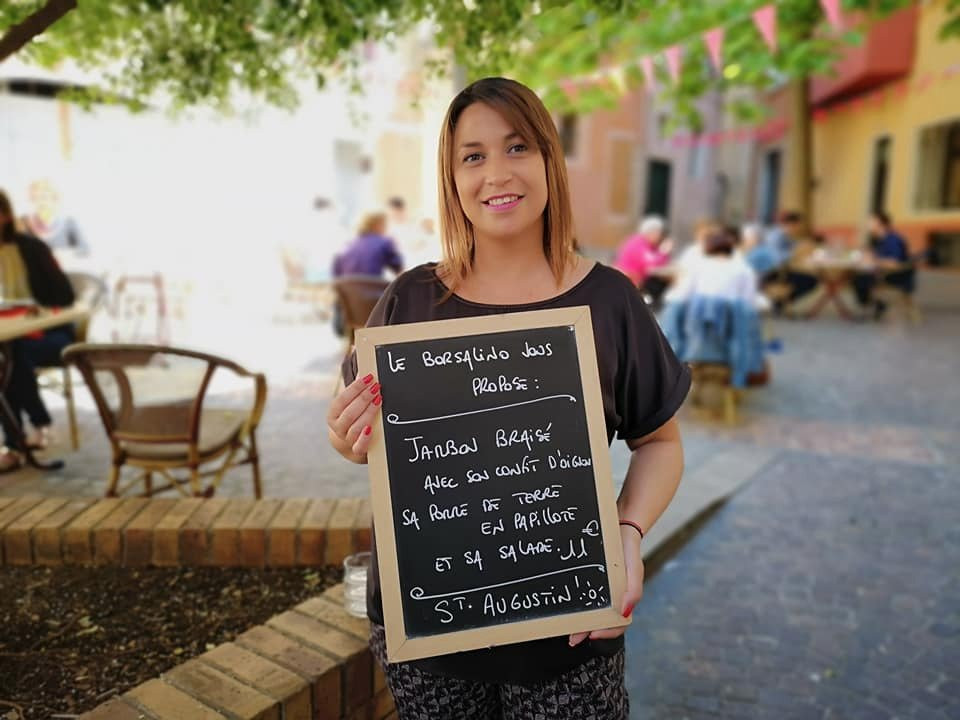 LE BORSALINO VOUS
PROPOSE :
JAMBON BRAISÉ
AVEC SON CONFIT D'OIGNON
SA POMME DE TERRE
EN PAPILLOTE
ET SA SALADE. 11 €
ST. AUGUSTIN !